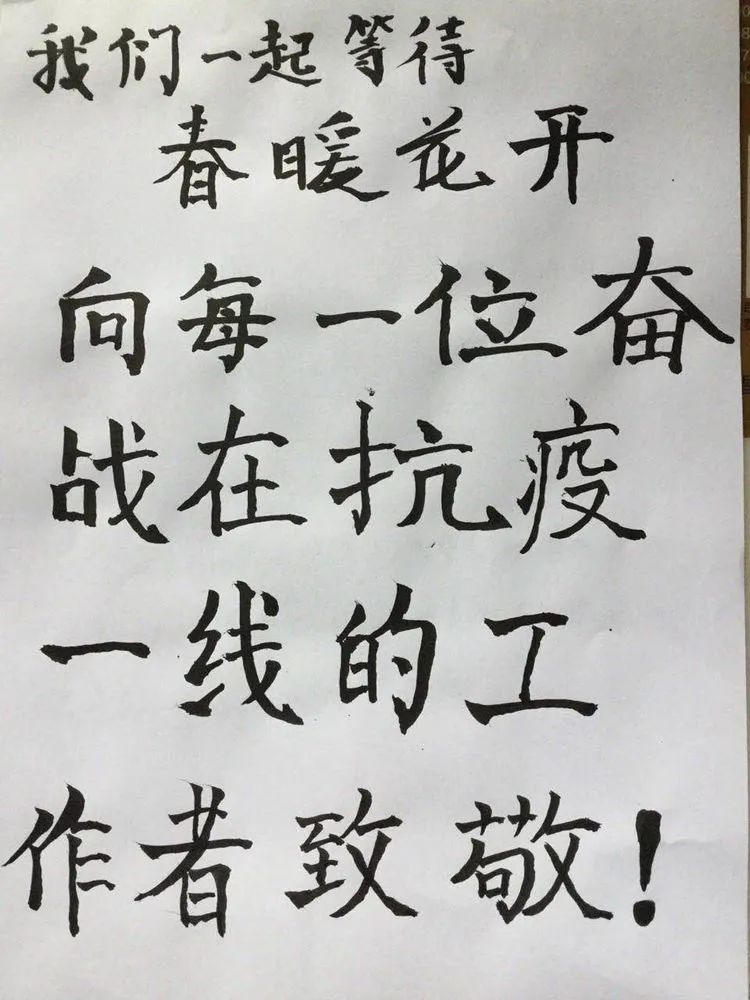 我们一起等待
春暖花开
向每一位奋
战在抗疫
一线的工
作者致敬！